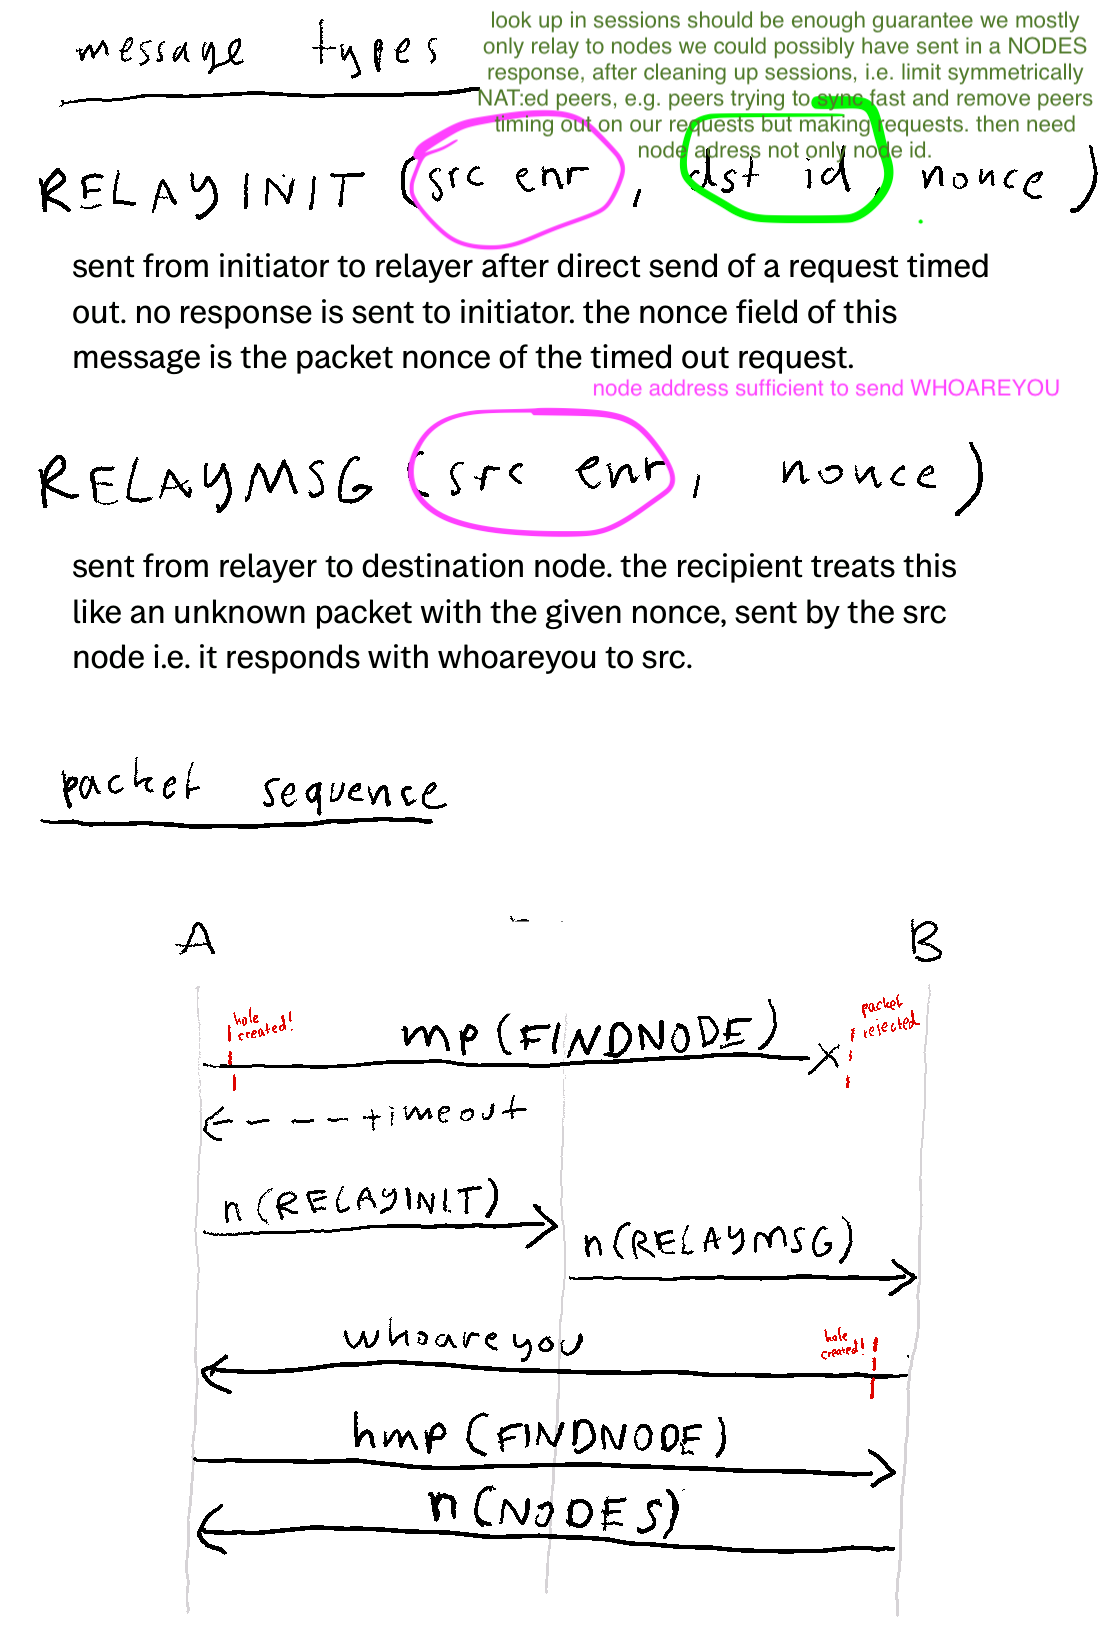 message types
look up in sessions should be enough guarantee we mostly
only relay to nodes we could possibly have sent in a NODES
response, after cleaning up sessions, i.e. limit symmetrically
NAT:ed peers, e.g. peers trying to sync fast and remove peers
timing out on our requests but making requests. then need
node adress not only node id.
RELAYINIT (src enr, dst id, nonce)
sent from initiator to relayer after direct send of a request timed
out. no response is sent to initiator. the nonce field of this
message is the packet nonce of the timed out request.
node address sufficient to send WHOAREYOU
RELAYMSG (src enr, nonce)
sent from relayer to destination node. the recipient treats this
like an unknown packet with the given nonce, sent by the src
node i.e. it responds with whoareyou to src.
packet sequence
A
B
hole
created!
mp (FINDNODE)
packet
rejected
timeout
n (RELAYINIT)
n (RELAYMSG)
whoareyou
hole
created!
hmp (FINDNODE)
n (NODES)